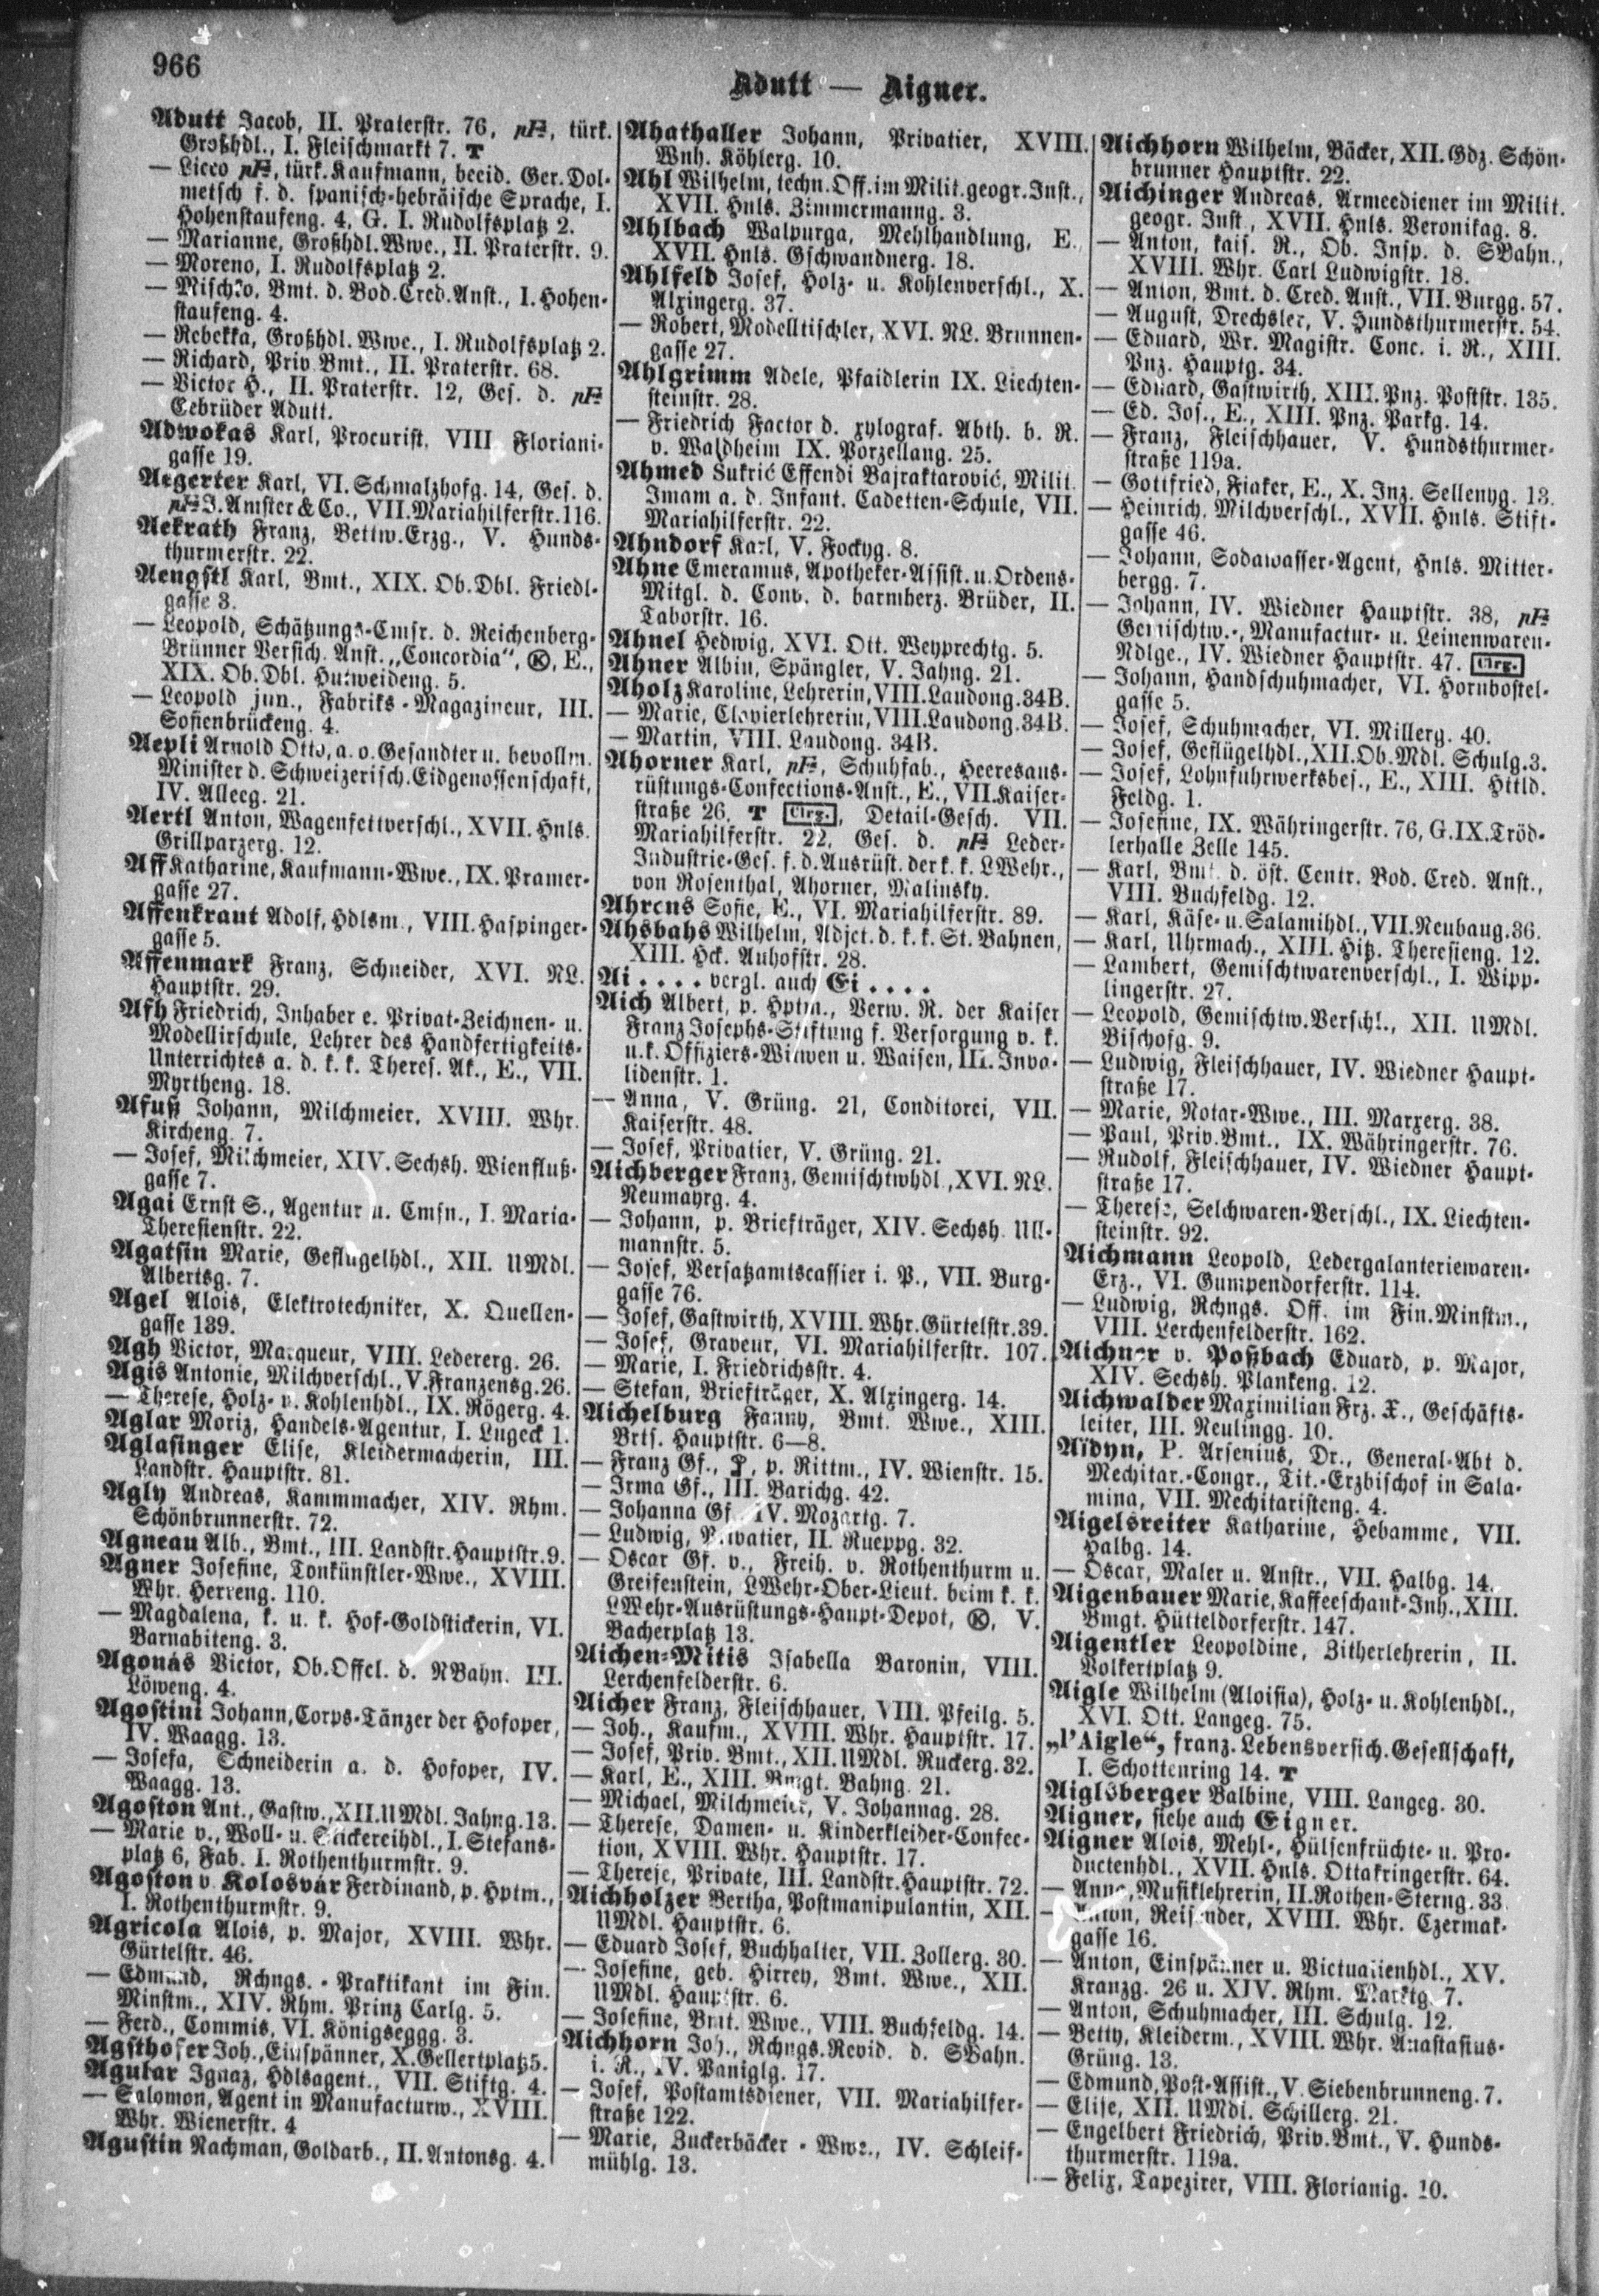 966
Adutt — Aigner.
Adutt Jacob, II. Praterstr. 76, pF, türk.
Großhdl., I. Fleischmarkt 7. T
— Licco pF, türk. Kaufmann, beeid. Ger. Dol-
metsch f. d. spanisch-hebräische Sprache, I.
Hohenstaufeng. 4, G. I. Rudolfsplatz 2.
— Marianne, Großhdl. Wwe., II. Praterstr. 9.
— Moreno, I. Rudolfsplatz 2.
— Bmt. d. Bod. Cred. Anst., I. Hohen-
staufeng. 4.
— Rebekka, Großhdl. Wwe., I. Rudolfsplatz 2.
— Richard, Priv. Bmt., II. Praterstr. 68.
— Victor H., II. Praterstr. 12, Ges. d. pF
Gebrüder Adutt.
Adwokas Karl, Procurist, VIII. Floriani-
gasse 19.
Aegerter Karl, VI. Schmalzhofg. 14, Ges. d.
pF J. Amster & Co., VII. Mariahilferstr. 116.
Aekrath Franz, Bettw. Erzg., V. Hunds-
thurmerstr. 22.
Aengstl Karl, Bmt., XIX. Ob. Dbl. Friedl-
gasse 3.
— Leopold, Schätzungs-Cmsr. d. Reichenberg-
Brünner Versich. Anst. „Concordia“, Ⓚ, E.,
XIX. Ob. Dbl. Hutweideng. 5.
— Leopold jun., Fabriks-Magazineur, III.
Sofienbrückeng. 4.
Aepli Arnold Otto, a. o. Gesandter u. bevollm.
Minister d. Schweizerisch. Eidgenossenschaft,
IV. Alleeg. 21.
Aertl Anton, Wagenfettverschl., XVII. Hnls.
Grillparzerg. 12.
Aff Katharine, Kaufmann-Wwe., IX. Pramer-
gasse 27.
Affenkraut Adolf, Hdlsm., VIII. Haspinger-
gasse 5.
Affenmark Franz, Schneider, XVI. NL.
Hauptstr. 29.
Afh Friedrich, Inhaber e. Privat-Zeichnen- u.
Modellirschule, Lehrer des Handfertigkeits-
Unterrichtes a. d. k. k. Theres. Ak., E., VII.
Myrtheng. 18.
Afuß Johann, Milchmeier, XVIII. Whr.
Kircheng. 7.
— Josef, Milchmeier, XIV. Sechsh. Wienfluß-
gasse 7.
Agai Ernst S., Agentur u. Cmsn., I. Maria-
Theresienstr. 22.
Agatsin Marie, Geflügelhdl., XII. UMdl.
Albertsg. 7.
Agel Alois, Elektrotechniker, X. Quellen-
gasse 139.
Agh Victor, Marqueur, VIII. Ledererg. 26.
Agis Antonie, Milchverschl., V. Franzensg. 26.
— Therese, Holz- u. Kohlenhdl., IX. Rögerg. 4.
Aglar Moriz, Handels-Agentur, I. Lugeck 1.
Aglasinger Elise, Kleidermacherin, III.
Landstr. Hauptstr. 81.
Agly Andreas, Kammmacher, XIV. Rhm.
Schönbrunnerstr. 72.
Agneau Alb., Bmt., III. Landstr. Hauptstr. 9.
Agner Josefine, Tonkünstler-Wwe., XVIII.
Whr. Herreng. 110.
— Magdalena, k. u. k. Hof-Goldstickerin, VI.
Barnabiteng. 3.
Agonás Victor, Ob. Offcl. d. NBahn. III.
Löweng. 4.
Agostini Johann, Corps-Tänzer der Hofoper,
IV. Waagg. 13.
— Josefa, Schneiderin a. d. Hofoper, IV.
Waagg. 13.
Agoston Ant., Gastw., XII. UMdl. Jahng. 13.
— Marie v., Woll- u. Stickereihdl., I. Stefans-
platz 6, Fab. I. Rothenthurmstr. 9.
Agoston v. Kolosvár Ferdinand, p. Hptm.,
I. Rothenthurmstr. 9.
Agricola Alois, p. Major, XVIII. Whr.
Gürtelstr. 46.
— Edmund, Rchngs.-Praktikant im Fin.
Minstm., XIV. Rhm. Prinz Carlg. 5.
— Ferd., Commis, VI. Königseggg. 3.
Agsthofer Joh., Einspänner, X. Gellertplatz 5.
Agular Ignaz, Hdlsagent., VII. Stiftg. 4.
— Salomon, Agent in Manufacturw., XVIII.
Whr. Wienerstr. 4
Agustin Nachman, Goldarb., II. Antonsg. 4.
Ahathaller Johann, Privatier, XVIII.
Wnh. Köhlerg. 10.
Ahl Wilhelm, techn. Off. im Milit. geogr. Inst.,
XVII. Hnls. Zimmermanng. 3.
Ahlbach Walpurga, Mehlhandlung, E.,
XVII. Hnls. Gschwandnerg. 18.
Ahlfeld Josef, Holz- u. Kohlenverschl., X.
Alxingerg. 37.
— Robert, Modelltischler, XVI. NL. Brunnen-
gasse 27.
Ahlgrimm Adele, Pfaidlerin IX. Liechten-
steinstr. 28.
— Friedrich Factor d. xylograf. Abth. b. R.
v. Waldheim IX. Porzellang. 25.
Ahmed Sukrić Effendi Bajraktarović, Milit.
Imam a. d. Infant. Cadetten-Schule, VII.
Mariahilferstr. 22.
Ahndorf Karl, V. Fockyg. 8.
Ahne Emeramus, Apotheker-Assist. u. Ordens-
Mitgl. d. Conv. d. barmherz. Brüder, II.
Taborstr. 16.
Ahnel Hedwig, XVI. Ott. Weyprechtg. 5.
Ahner Albin, Spängler, V. Jahng. 21.
Aholz Karoline, Lehrerin, VIII. Laudong. 34B.
— Marie, Clavierlehrerin, VIII. Laudong. 34B.
— Martin, VIII. Laudong. 34B.
Ahorner Karl, pF, Schuhfab., Heeresaus-
rüstungs-Confections-Anst., E., VII. Kaiser-
straße 26. T Clrg., Detail-Gesch. VII.
Mariahilferstr. 22, Ges. d. pF Leder-
Industrie-Ges. f. d. Ausrüst. der k. k. LWehr.,
von Rosenthal, Ahorner, Malinsky.
Ahrens Sofie, E., VI. Mariahilferstr. 89.
Ahsbahs Wilhelm, Adjct. d. k. k. St. Bahnen,
XIII. Hck. Auhofstr. 28.
Ai . . . . vergl. auch Ei . . . .
Aich Albert, p. Hptm., Verw. R. der Kaiser
Franz Josephs-Stiftung f. Versorgung v. k.
u. k. Offiziers-Witwen u. Waisen, III. Inva-
lidenstr. 1.
— Anna, V. Grüng. 21, Conditorei, VII.
Kaiserstr. 48.
— Josef, Privatier, V. Grüng. 21.
Aichberger Franz, Gemischtwhdl., XVI. NL.
Neumayrg. 4.
— Johann, p. Briefträger, XIV. Sechsh. Ull-
mannstr. 5.
— Josef, Versatzamtscassier i. P., VII. Burg-
gasse 76.
— Josef, Gastwirth, XVIII. Whr. Gürtelstr. 39.
— Josef, Graveur, VI. Mariahilferstr. 107.
— Marie, I. Friedrichsstr. 4.
— Stefan, Briefträger, X. Alxingerg. 14.
Aichelburg Fanny, Bmt. Wwe., XIII.
Brts. Hauptstr. 6—8.
— Franz Gf., p. Rittm., IV. Wienstr. 15.
— Irma Gf., III. Barichg. 42.
— Johanna Gf., IV. Mozartg. 7.
— Ludwig, Privatier, II. Rueppg. 32.
— Oscar Gf. v., Freih. v. Rothenthurm u.
Greifenstein, LWehr-Ober-Lieut. beim k. k.
LWehr-Ausrüstungs-Haupt-Depot, Ⓚ, V.
Bacherplatz 13.
Aichen-Mitis Isabella Baronin, VIII.
Lerchenfelderstr. 6.
Aicher Franz, Fleischhauer, VIII. Pfeilg. 5.
— Joh., Kaufm., XVIII. Whr. Hauptstr. 17.
— Josef, Priv. Bmt., XII. UMdl. Ruckerg. 32.
— Karl, E., XIII. Bmgt. Bahng. 21.
— Michael, Milchmeier, V. Johannag. 28.
— Therese, Damen- u. Kinderkleider-Confec-
tion, XVIII. Whr. Hauptstr. 17.
— Therese, Private, III. Landstr. Hauptstr. 72.
Aichholzer Bertha, Postmanipulantin, XII.
UMdl. Hauptstr. 6.
— Eduard Josef, Buchhalter, VII. Zollerg. 30.
— Josefine, geb. Hirrey, Bmt. Wwe., XII.
UMdl. Hauptstr. 6.
— Josefine, Bmt. Wwe., VIII. Buchfeldg. 14.
Aichhorn Joh., Rchngs. Revid. d. SBahn.
i. R., IV. Paniglg. 17.
— Josef, Postamtsdiener, VII. Mariahilfer-
straße 122.
— Marie, Zuckerbäcker-Wwe., IV. Schleif-
mühlg. 13.
Aichhorn Wilhelm, Bäcker, XII. Gdz. Schön-
brunner Hauptstr. 22.
Aichinger Andreas, Armeediener im Milit.
geogr. Inst., XVII. Hnls. Veronikag. 8.
— Anton, kais. R., Ob. Insp. d. SBahn.,
XVIII. Whr. Carl Ludwigstr. 18.
— Anton, Bmt. d. Cred. Anst., VII. Burgg. 57.
— August, Drechsler, V. Hundsthurmerstr. 54.
— Eduard, Wr. Magistr. Conc. i. R., XIII.
Pnz. Hauptg. 34.
— Eduard, Gastwirth, XIII. Pnz. Poststr. 135.
— Ed. Jos., E., XIII. Pnz. Parkg. 14.
— Franz, Fleischhauer, V. Hundsthurmer-
straße 119a.
— Gottfried, Fiaker, E., X. Inz. Sellenyg. 13.
— Heinrich, Milchverschl., XVII. Hnls. Stift-
gasse 46.
— Johann, Sodawasser-Agent, Hnls. Mitter-
bergg. 7.
— Johann, IV. Wiedner Hauptstr. 38, pF
Gemischtw.-, Manufactur- u. Leinenwaren-
Ndlge., IV. Wiedner Hauptstr. 47. Clrg.
— Johann, Handschuhmacher, VI. Hornbostel-
gasse 5.
— Josef, Schuhmacher, VI. Millerg. 40.
— Josef, Geflügelhdl., XII. Ob. Mdl. Schulg. 3.
— Josef, Lohnfuhrwerksbes., E., XIII. Httld.
Feldg. 1.
— Josefine, IX. Währingerstr. 76, G. IX. Tröd-
lerhalle Zelle 145.
— Karl, Bmt. d. öst. Centr. Bod. Cred. Anst.,
VIII. Buchfeldg. 12.
— Karl, Käse- u. Salamihdl., VII. Neubaug. 36.
— Karl, Uhrmach., XIII. Hitz. Theresieng. 12.
— Lambert, Gemischtwarenverschl., I. Wipp-
lingerstr. 27.
— Leopold, Gemischtw. Verschl., XII. UMdl.
Bischofg. 9.
— Ludwig, Fleischhauer, IV. Wiedner Haupt-
straße 17.
— Marie, Notar-Wwe., III. Marxerg. 38.
— Paul, Priv. Bmt., IX. Währingerstr. 76.
— Rudolf, Fleischhauer, IV. Wiedner Haupt-
straße 17.
— Therese, Selchwaren-Verschl., IX. Liechten-
steinstr. 92.
Aichmann Leopold, Ledergalanteriewaren-
Erz., VI. Gumpendorferstr. 114.
— Ludwig, Rchngs. Off. im Fin. Minstm.,
VIII. Lerchenfelderstr. 162.
Aichner v. Poßbach Eduard, p. Major,
XIV. Sechsh. Plankeng. 12.
Aichwalder Maximilian Frz. X., Geschäfts-
leiter, III. Neulingg. 10.
Aïdyn, P. Arsenius, Dr., General-Abt d.
Mechitar.-Congr., Tit.-Erzbischof in Sala-
mina, VII. Mechitaristeng. 4.
Aigelsreiter Katharine, Hebamme, VII.
Halbg. 14.
— Oscar, Maler u. Anstr., VII. Halbg. 14.
Aigenbauer Marie, Kaffeeschank-Inh., XIII.
Bmgt. Hütteldorferstr. 147.
Aigentler Leopoldine, Zitherlehrerin, II.
Volkertplatz 9.
Aigle Wilhelm (Aloisia), Holz- u. Kohlenhdl.,
XVI. Ott. Langeg. 75.
„l'Aigle“, franz. Lebensversich. Gesellschaft,
I. Schottenring 14. T
Aiglsberger Balbine, VIII. Langeg. 30.
Aigner, siehe auch Eigner.
Aigner Alois, Mehl-, Hülsenfrüchte- u. Pro-
ductenhdl., XVII. Hnls. Ottakringerstr. 64.
— Anna, Musiklehrerin, II. Rothen-Sterng. 33.
— Anton, Reisender, XVIII. Whr. Czermak-
gasse 16.
— Anton, Einspänner u. Victualienhdl., XV.
Kranzg. 26 u. XIV. Rhm. Marktg. 7.
— Anton, Schuhmacher, III. Schulg. 12.
— Betty, Kleiderm., XVIII. Whr. Anastasius-
Grüng. 13.
— Edmund, Post-Assist., V. Siebenbrunneng. 7.
— Elise, XII. UMdl. Schillerg. 21.
— Engelbert Friedrich, Priv. Bmt., V. Hunds-
thurmerstr. 119a.
— Felix, Tapezirer, VIII. Florianig. 10.